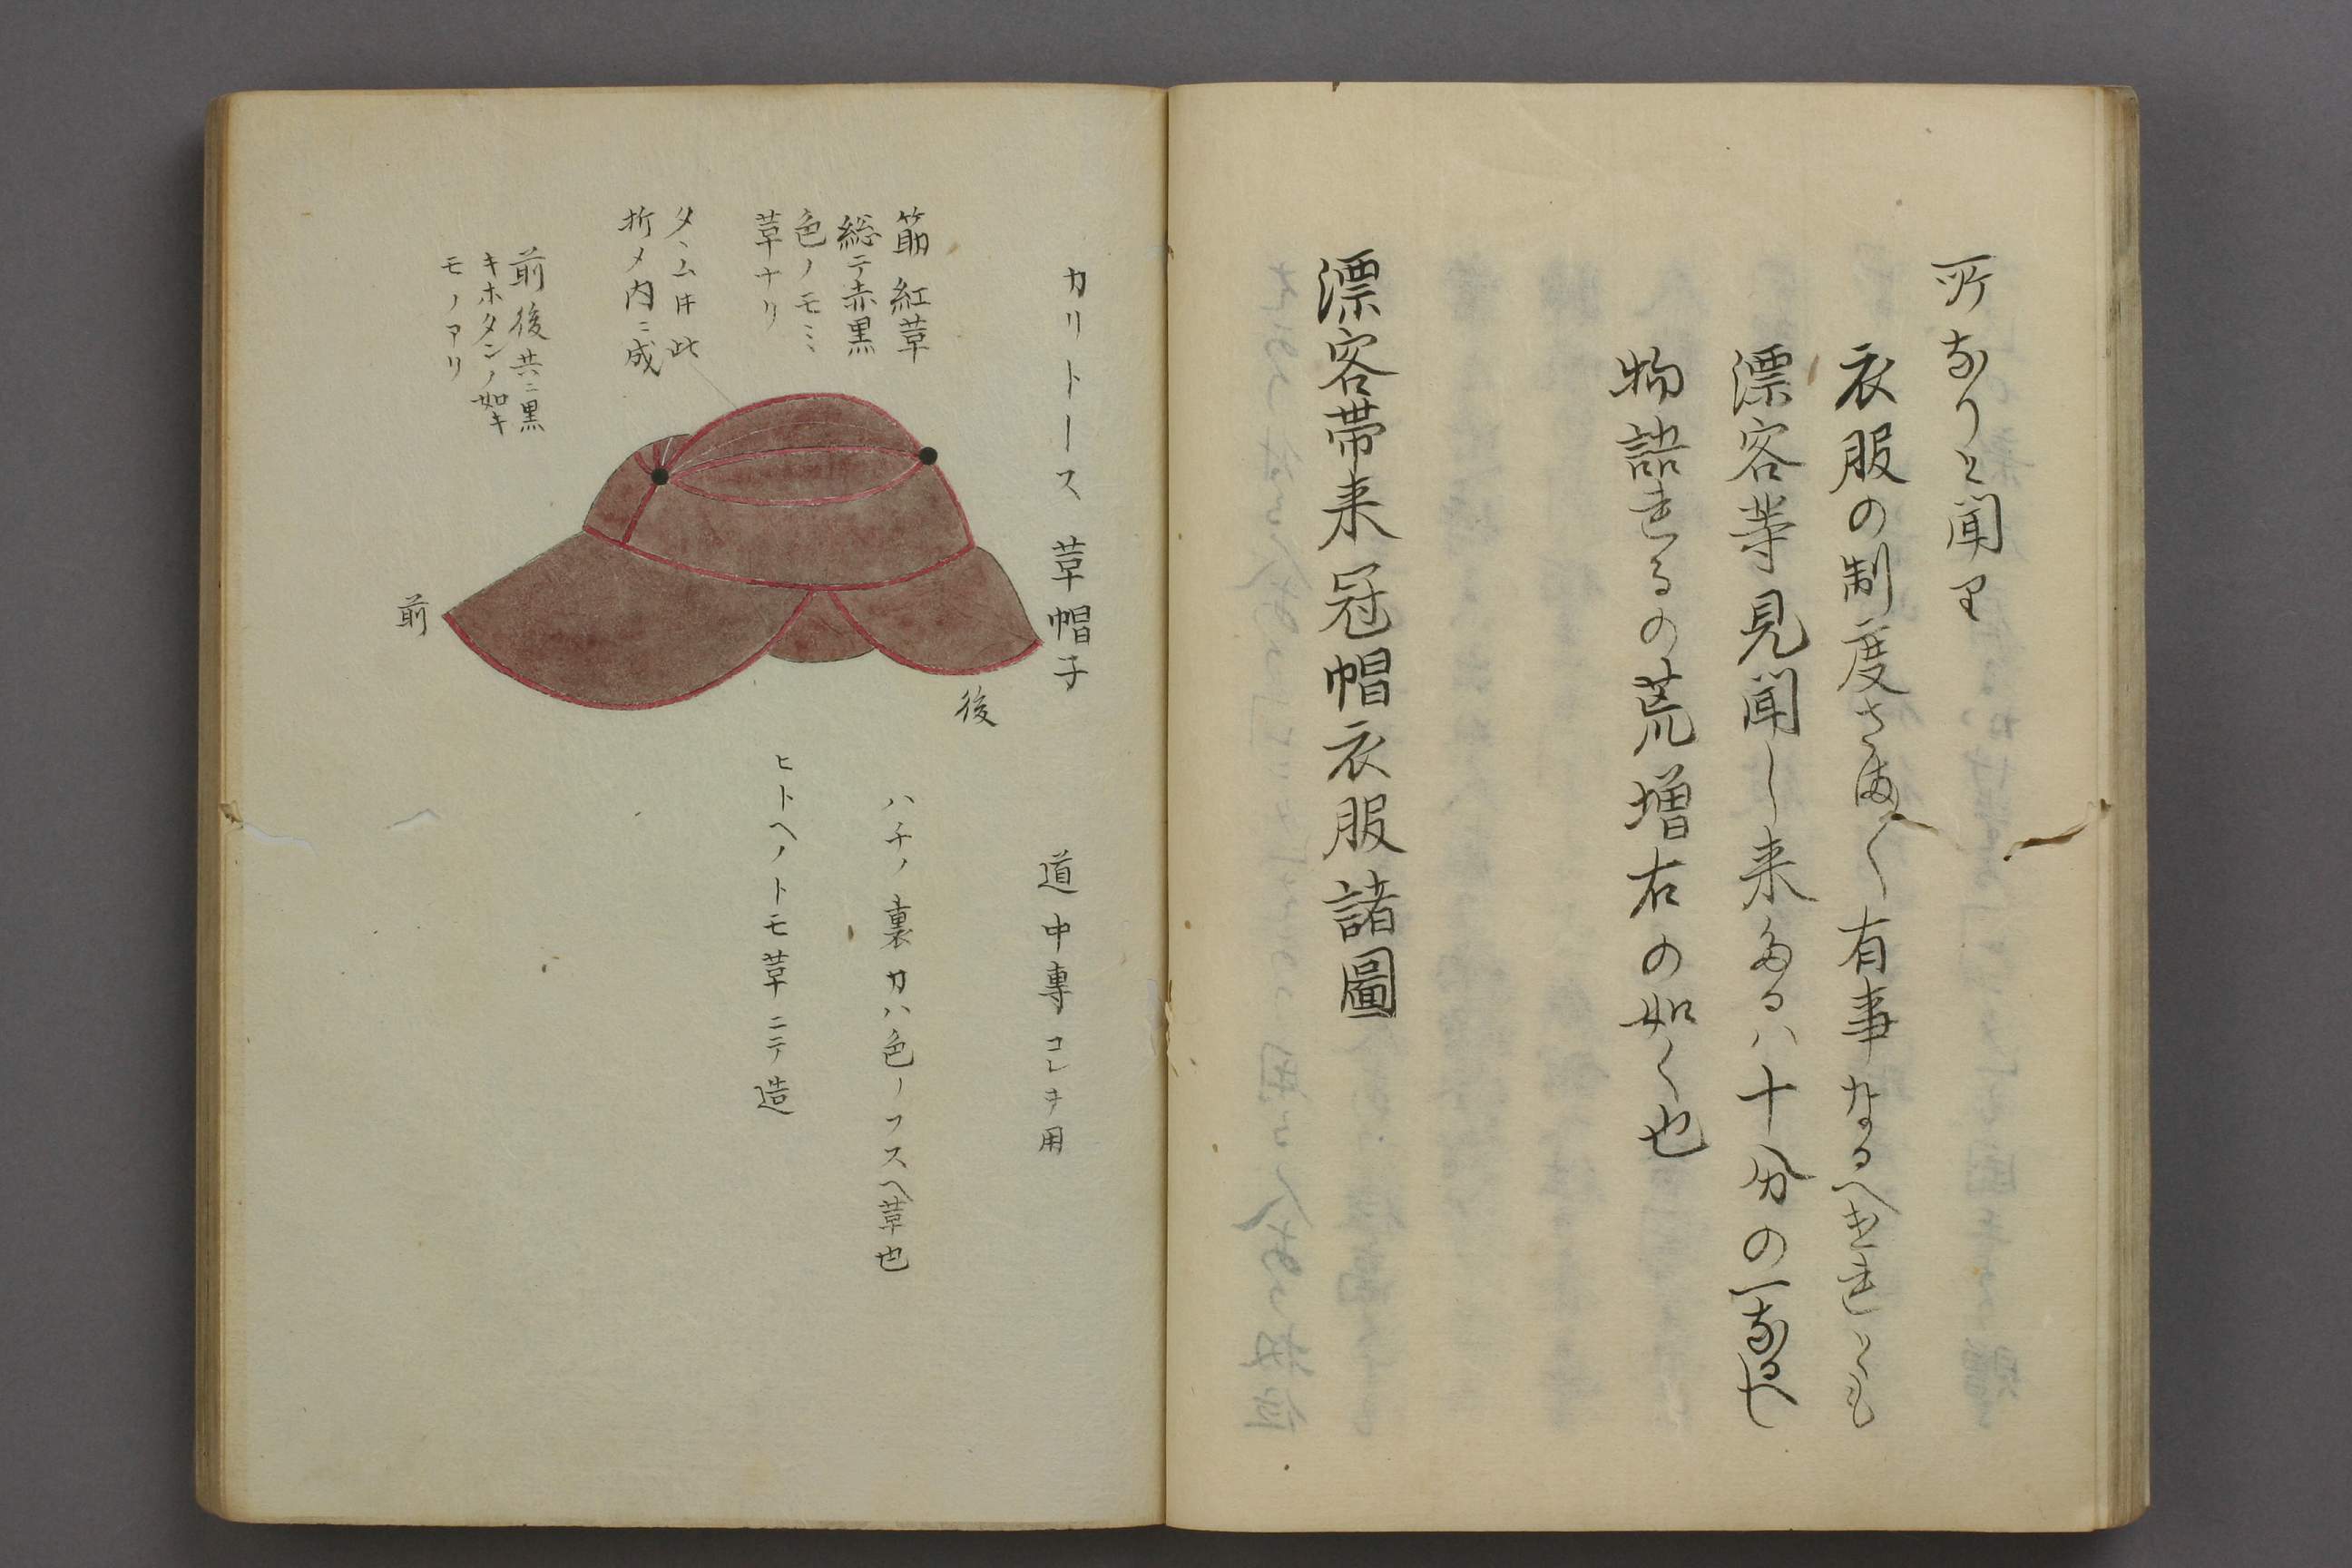 所なりと聞り
衣服の制度さま〲有事なるへけれとも
漂客等見聞し来たるハ十分の一なるへし
物語れるの荒増右の如く也
漂客帯来冠帽衣服諸圖
カリトース 革帽子
道中専コレヲ用
筋紅革
総テ赤黒
色ノモミ
革ナリ
タヽム寸此
折メ内ニ成
前後共ニ黒
キホタンノ如キ
モノアリ
前
後
ハチノ裏カハ色ノフスヘ革也
ヒトヘノトモ革ニテ造